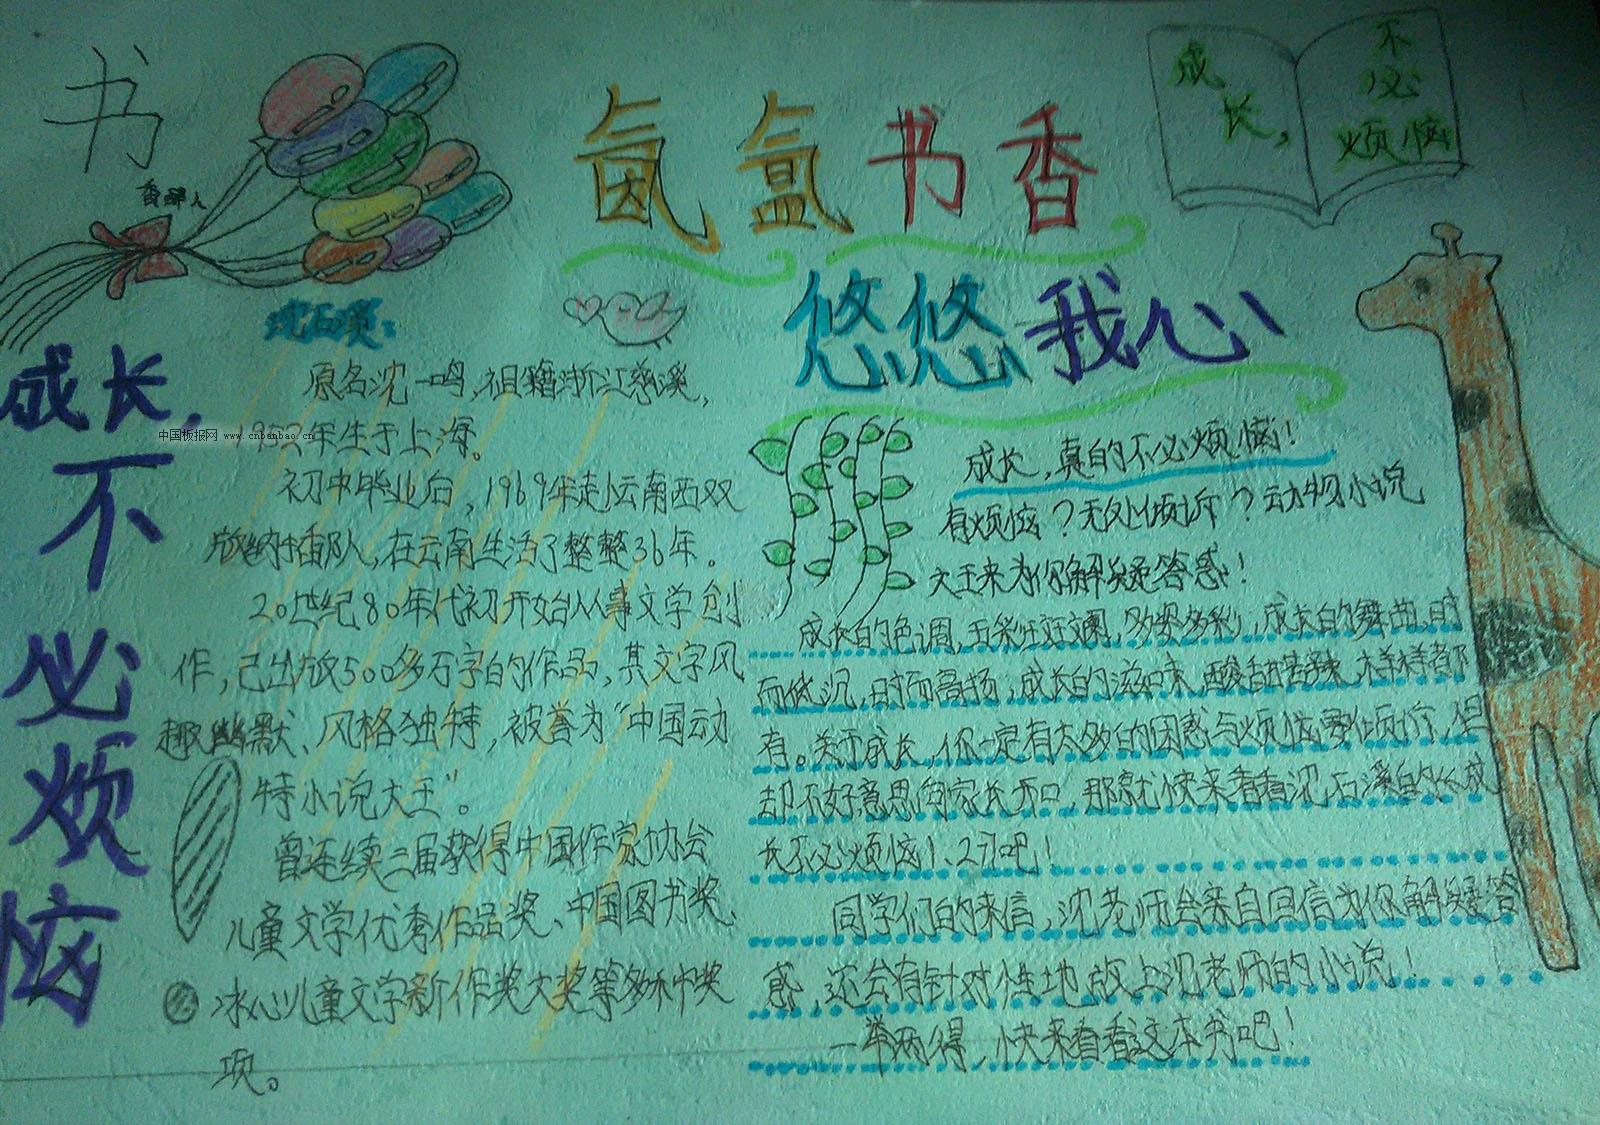 书
香醉人
氤氲书香
悠悠我心
成
长,
不
必
烦恼
成长,
不
必
烦
恼
沈石溪:
原名沈一鸣,祖籍浙江慈溪,
1952年生于上海。
中国板报网 www.cnbanbao.cn
初中毕业后,1969年赴云南西双
版纳插队,在云南生活了整整36年。
20世纪80年代初开始从事文学创
作,已出版500多万字的作品,其文字风
趣幽默、风格独特,被誉为“中国动
特小说大王”。
曾连续三届获得中国作家协会
儿童文学优秀作品奖、中国图书奖、
冰心儿童文学新作奖大奖等多种奖
项。
成长,真的不必烦恼!
有烦恼?无处倾诉?动物小说
大王来为你解疑答惑!
成长的色调,五彩斑斓,多姿多彩;成长的舞曲,时
而低沉,时而高扬;成长的滋味,酸甜苦辣,样样都
有。关于成长,你一定有太多的困惑与烦恼要倾诉,但
却不好意思向家长开口,那就快来看看沈石溪的长成
长不必烦恼1、2》吧!
同学们的来信,沈老师会亲自回信为你解疑答
惑,还会有针对性地放上沈老师的小说!
一举两得,快来看看这本书吧!